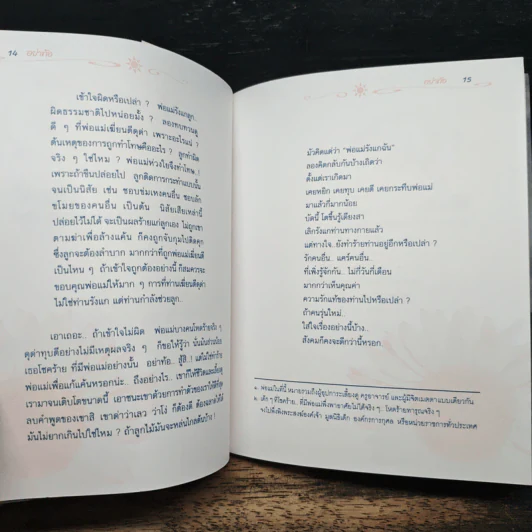 14 อย่าท้อ
เข้าใจผิดหรือเปล่า ? พ่อแม่รังแกลูก..
ผิดธรรมชาติไปหน่อยมั้ง ? ลองทบทวนดู
ดี ๆ ที่พ่อแม่เฆี่ยนตีดุด่า เพราะอะไรแน่ ?
ต้นเหตุของการถูกทำโทษคืออะไร ? ลูกทำผิด
จริง ๆ ใช่ไหม ? พ่อแม่ห่วงใยจึงทำโทษ..!
เพราะถ้าขืนปล่อยไป ลูกติดการกระทำแบบนั้น
จนเป็นนิสัย เช่น ชอบข่มเหงคนอื่น ชอบลัก
ขโมยของคนอื่น เป็นต้น นิสัยเสียเหล่านี้
ปล่อยไว้ไม่ได้ จะเป็นผลร้ายแก่ลูกเอง ไม่ถูกเขา
ตามฆ่าเพื่อล้างแค้น ก็คงถูกจับกุมไปติดคุก
ซึ่งลูกจะต้องลำบาก มากกว่าที่ถูกพ่อแม่เฆี่ยนตี
เป็นไหน ๆ ถ้าเข้าใจถูกต้องอย่างนี้ ก็สมควรจะ
ขอบคุณพ่อแม่ให้มาก ๆ การที่ท่านเฆี่ยนตีดุด่า
ไม่ใช่ท่านรังแก แต่ท่านกำลังช่วยลูก..
เอาเถอะ.. ถ้าเข้าใจไม่ผิด พ่อแม่บางคนโหดร้ายจริง ๆ
ดุด่าทุบตีอย่างไม่มีเหตุผลจริง ๆ ก็ขอให้รู้ว่า นั่นมันส่วนน้อย
เธอโชคร้าย ที่มีพ่อแม่อย่างนั้น อย่าท้อ.. สู้สิ..! แต่ไม่ใช่ทำร้าย
พ่อแม่เพื่อแก้แค้นหรอกน่ะ.. ถึงอย่างไร.. เขาก็ให้ชีวิตและเลี้ยงดู
เรามาจนเติบโตขนาดนี้ เอาชนะเขาด้วยการทำตัวของเราให้ดีที่สุด
ลบคำพูดของเขาสิ เขาด่าว่าเลว ว่าโง่ ก็ต้องดี ต้องฉลาดให้ได้
มันไม่ยากเกินไปใช่ไหม ? ถ้าลูกไม้มันจะหล่นไกลต้นบ้าง !
อย่าท้อ 15
มัวคิดแต่ว่า "พ่อแม่รังแกฉัน"
ลองคิดกลับกันบ้างเถิดว่า
ตั้งแต่เราเกิดมา
เคยหยิก เคยทุบ เคยตี เคยกระทืบพ่อแม่
มาแล้วกี่มากน้อย
บัดนี้ โตขึ้นรู้เดียงสา
เลิกรังแกท่านทางกายแล้ว
แต่ทางใจ.. ยังทำร้ายท่านอยู่อีกหรือเปล่า ?
รักคนอื่น.. แคร์คนอื่น..
ที่เพิ่งรู้จักกัน.. ไม่กี่วันกี่เดือน
มากกว่าเห็นคุณค่า
ความรักแท้ของท่านไปหรือเปล่า ?
ถ้าคนรุ่นใหม่..
ใส่ใจเรื่องอย่างนี้บ้าง..
สังคมก็คงจะดีกว่านี้หรอก.
๑. พ่อแม่ในที่นี้ หมายรวมถึงผู้อุปการะเลี้ยงดู ครูอาจารย์ และผู้มีจิตเมตตาแบบเดียวกัน
๒. เด็ก ๆ ที่โชคร้าย.. ที่มีพ่อแม่พึ่งพาอาศัยไม่ได้จริง ๆ.. โหดร้ายทารุณจริง ๆ
จงไปพึ่งพิงพระสงฆ์องค์เจ้า มูลนิธิเด็ก องค์กรการกุศล หรือหน่วยราชการทั่วประเทศ